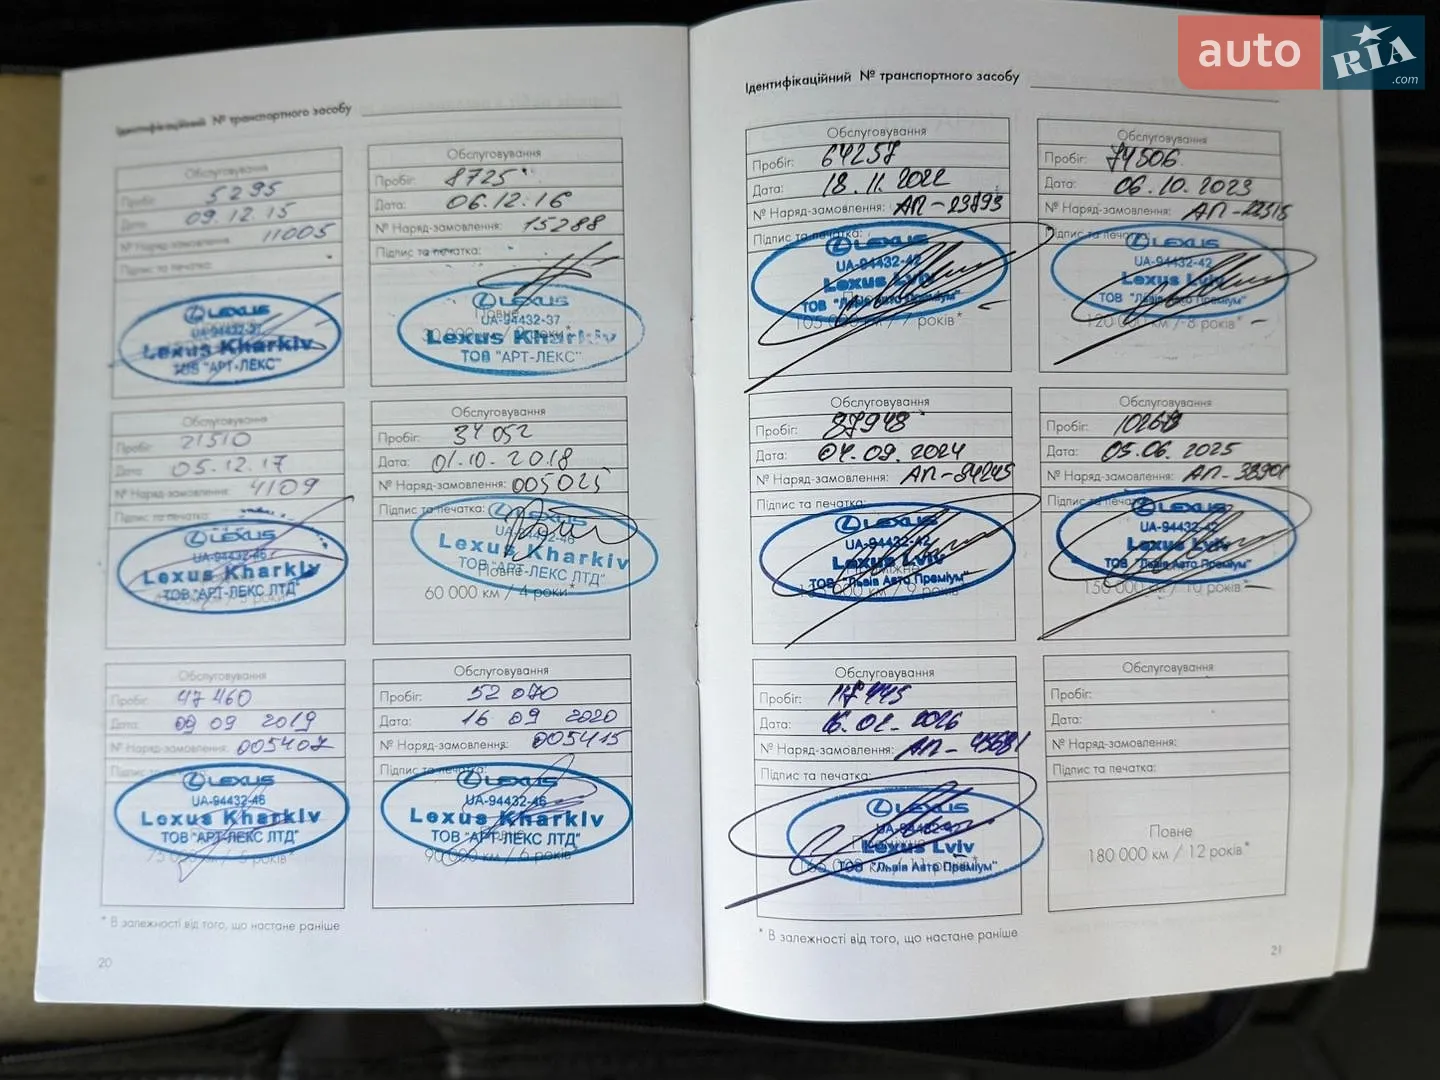 auto RIA .com
Ідентифікаційний № транспортного засобу
Обслуговування
Пробіг: 5295
Дата: 09.12.15
№ Наряд-замовлення: 11005
Підпис та печатка:
LEXUS
UA-94432-37
Lexus Kharkiv
ТОВ "АРТ-ЛЕКС"
Обслуговування
Пробіг: 8725
Дата: 06.12.16
№ Наряд-замовлення: 15288
Підпис та печатка:
LEXUS
Повне
UA-94432-37
30 000 км / 2 роки*
Lexus Kharkiv
ТОВ "АРТ-ЛЕКС"
Обслуговування
Пробіг: 21510
Дата: 05.12.17
№ Наряд-замовлення: 4109
Підпис та печатка:
LEXUS
UA-94432-46
Lexus Kharkiv
ТОВ "АРТ-ЛЕКС ЛТД"
Обслуговування
Пробіг: 34 052
Дата: 01.10.2018
№ Наряд-замовлення: 005025
Підпис та печатка:
LEXUS
UA-94432-46
Lexus Kharkiv
ТОВ "АРТ-ЛЕКС ЛТД"
Повне
60 000 км / 4 роки*
Обслуговування
Пробіг: 47 460
Дата: 09 09 2019
№ Наряд-замовлення: 005407
Підпис та печатка:
LEXUS
UA-94432-46
Lexus Kharkiv
ТОВ "АРТ-ЛЕКС ЛТД"
75 000 км / 5 років*
Обслуговування
Пробіг: 52 070
Дата: 16 09 2020
№ Наряд-замовлення: 005415
Підпис та печатка:
LEXUS
UA-94432-46
Lexus Kharkiv
ТОВ "АРТ-ЛЕКС ЛТД"
90 000 км / 6 років*
* В залежності від того, що настане раніше
20
Ідентифікаційний № транспортного засобу
Обслуговування
Пробіг: 64257
Дата: 18.11.2022
№ Наряд-замовлення: АП-23893
Підпис та печатка:
LEXUS
UA-94432-42
Lexus Lviv
ТОВ "Львів Авто Преміум"
105 000 км / 7 років*
Обслуговування
Пробіг: 74506
Дата: 06.10.2023
№ Наряд-замовлення:
Підпис та печатка:
LEXUS
UA-94432-42
Lexus Lviv
ТОВ "Львів Авто Преміум"
120 000 км / 8 років*
Обслуговування
Пробіг: 87948
Дата: 04.09.2024
№ Наряд-замовлення: АП-34245
Підпис та печатка:
LEXUS
UA-94432-42
Lexus Lviv
ТОВ "Львів Авто Преміум"
135 000 км / 9 років*
Обслуговування
Пробіг:
Дата: 05.06.2025
№ Наряд-замовлення: АП-38901
Підпис та печатка:
LEXUS
UA-94432-42
Lexus Lviv
ТОВ "Львів Авто Преміум"
150 000 км / 10 років*
Обслуговування
Пробіг: 117445
Дата: 16.02.2026
№ Наряд-замовлення:
Підпис та печатка:
LEXUS
UA-94432-42
Lexus Lviv
ТОВ "Львів Авто Преміум"
Обслуговування
Пробіг:
Дата:
№ Наряд-замовлення:
Підпис та печатка:
Повне
180 000 км / 12 років*
* В залежності від того, що настане раніше
21